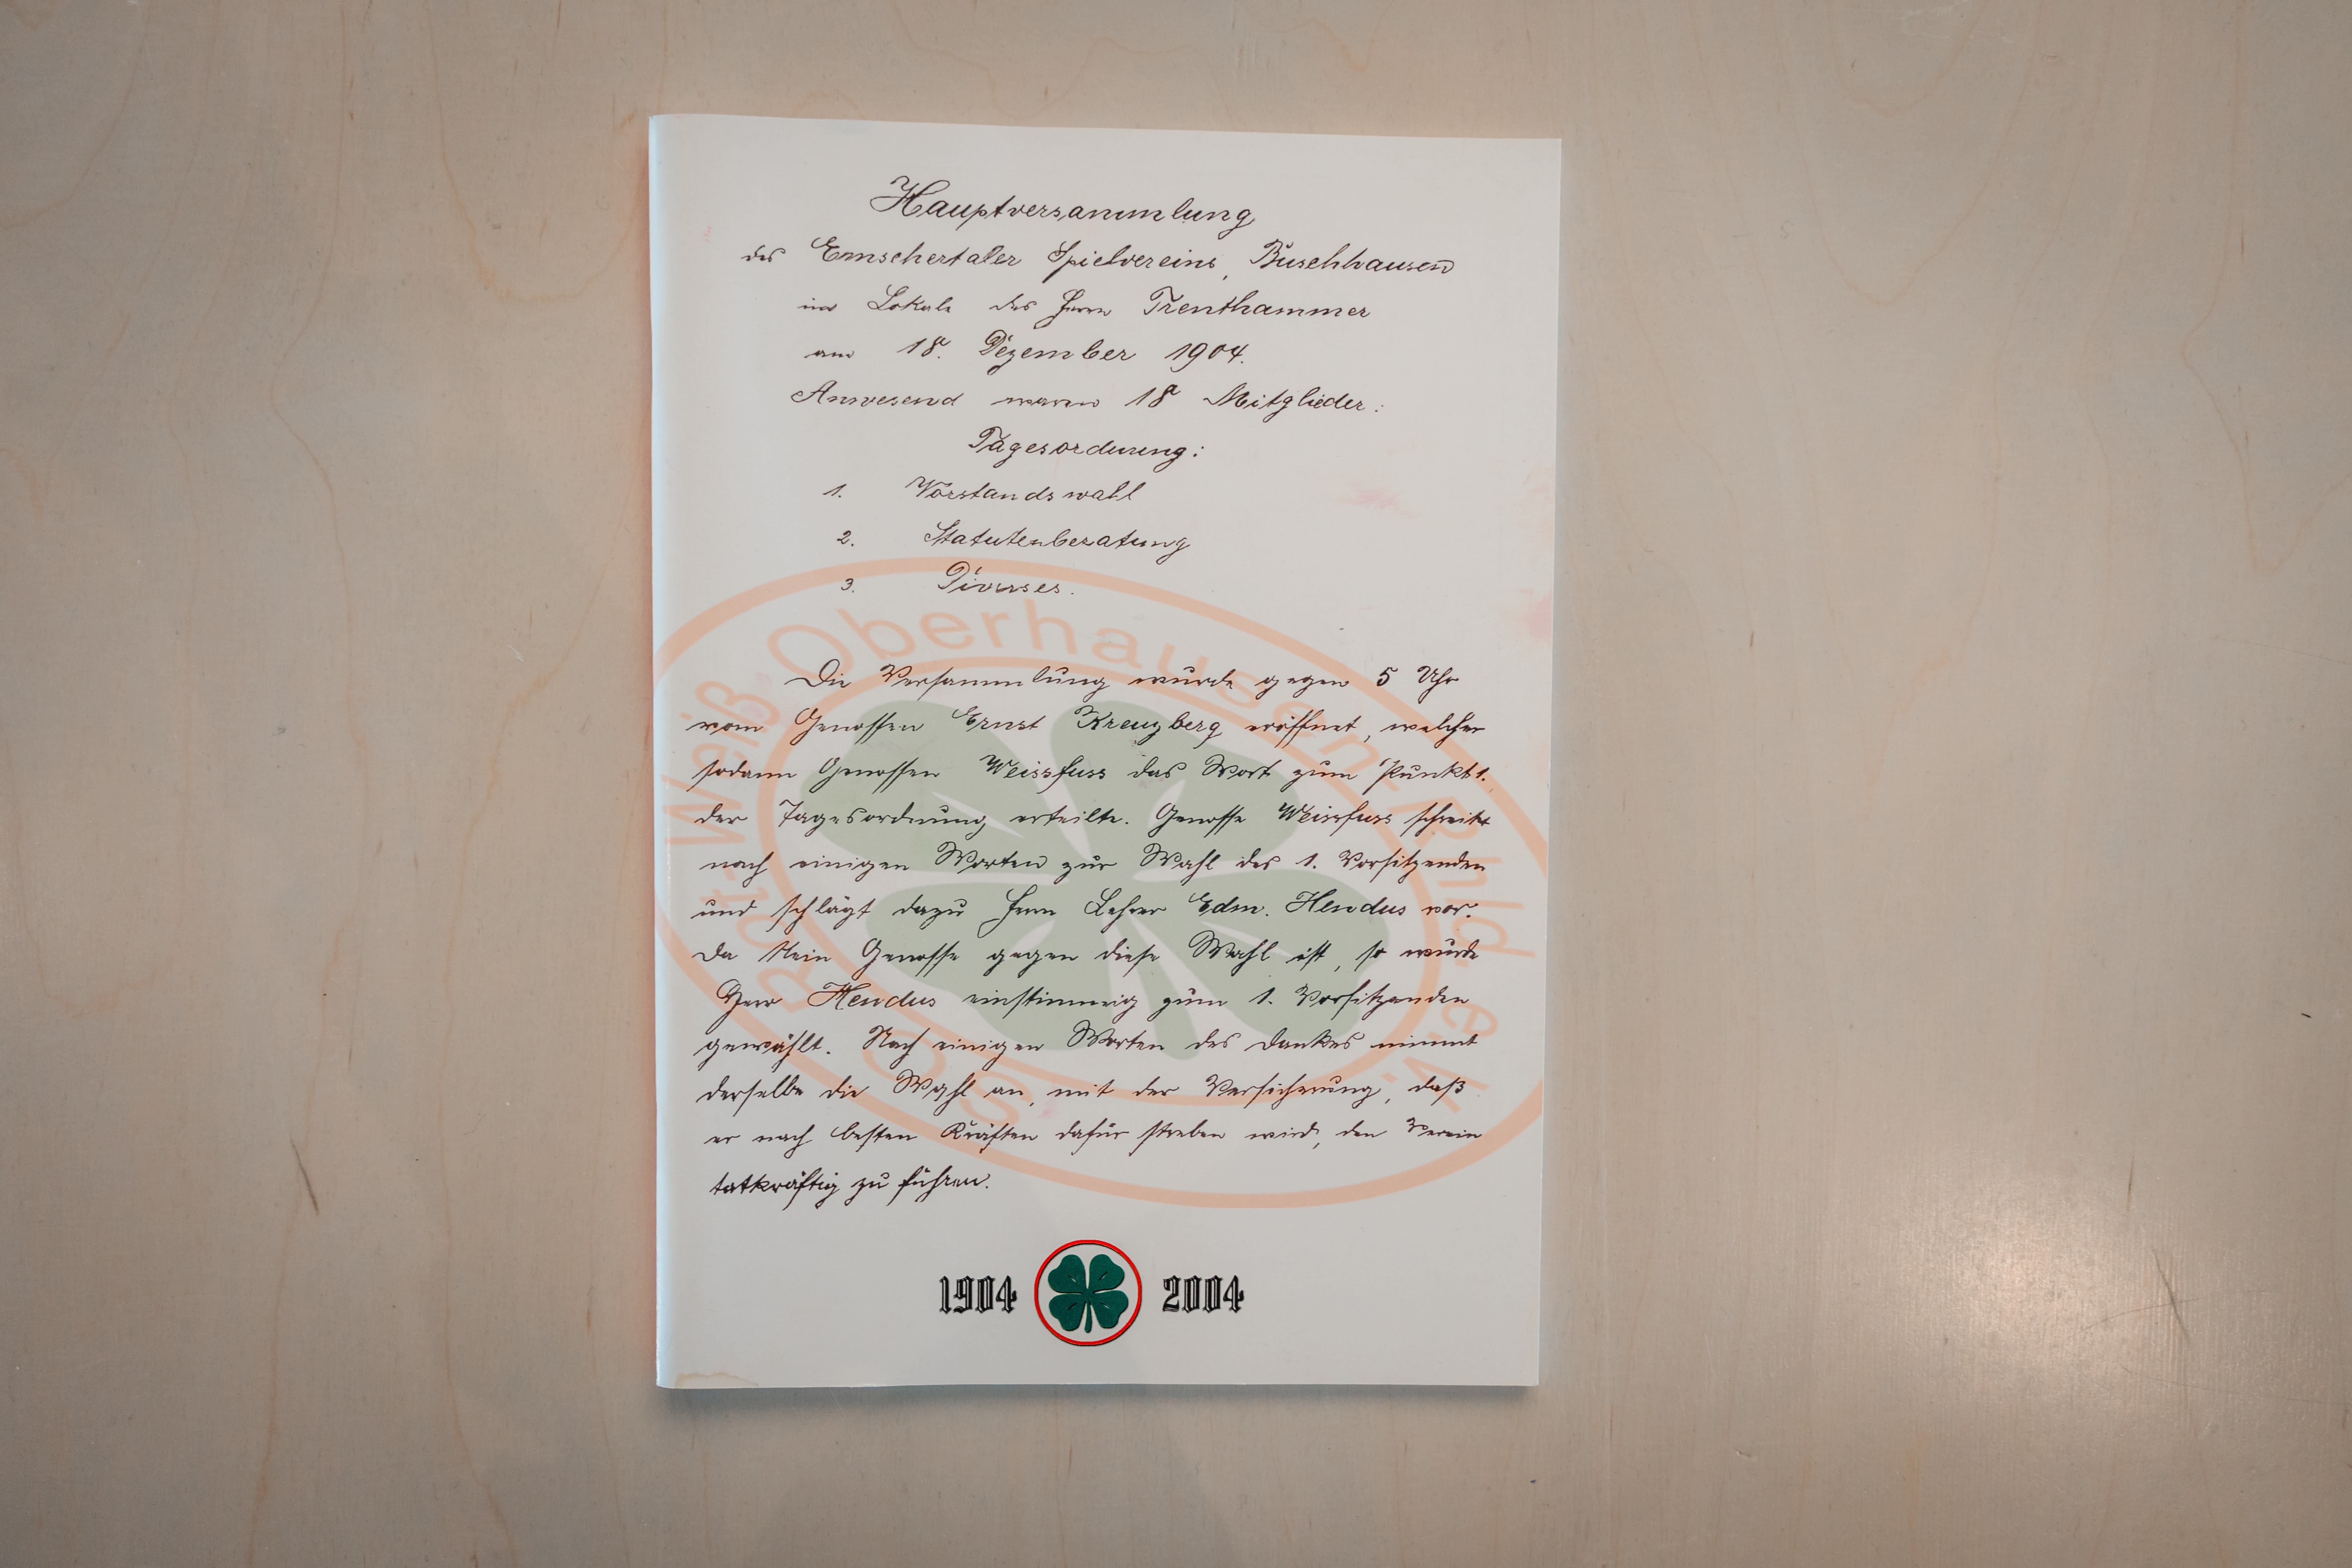 Hauptversammlung
des Emschertaler Spielvereins, Buschhausen
im Lokale des Herrn Trenthammer
am 18. Dezember 1904.
Anwesend waren 18 Mitglieder:
Tagesordnung:
1. Vorstandswahl
2. Statutenberatung
3. Diverses.
Die Versammlung wurde gegen 5 Uhr
vom Genossen Ernst Kreuzberg eröffnet, welcher
sodann Genossen Weissfuss das Wort zum Punkt 1.
der Tagesordnung erteilte. Genosse Weissfuss schreitet
nach einigen Worten zur Wahl des 1. Vorsitzenden
und schlägt dazu Herrn Lehrer Edm. Hendus vor.
Da kein Genosse gegen diese Wahl ist, so wurde
Herr Hendus einstimmig zum 1. Vorsitzenden
gewählt. Nach einigen Worten des Dankes nimmt
derselbe die Wahl an, mit der Versicherung, daß
er nach besten Kräften dafür streben wird, den Verein
tatkräftig zu führen.
1904 2004